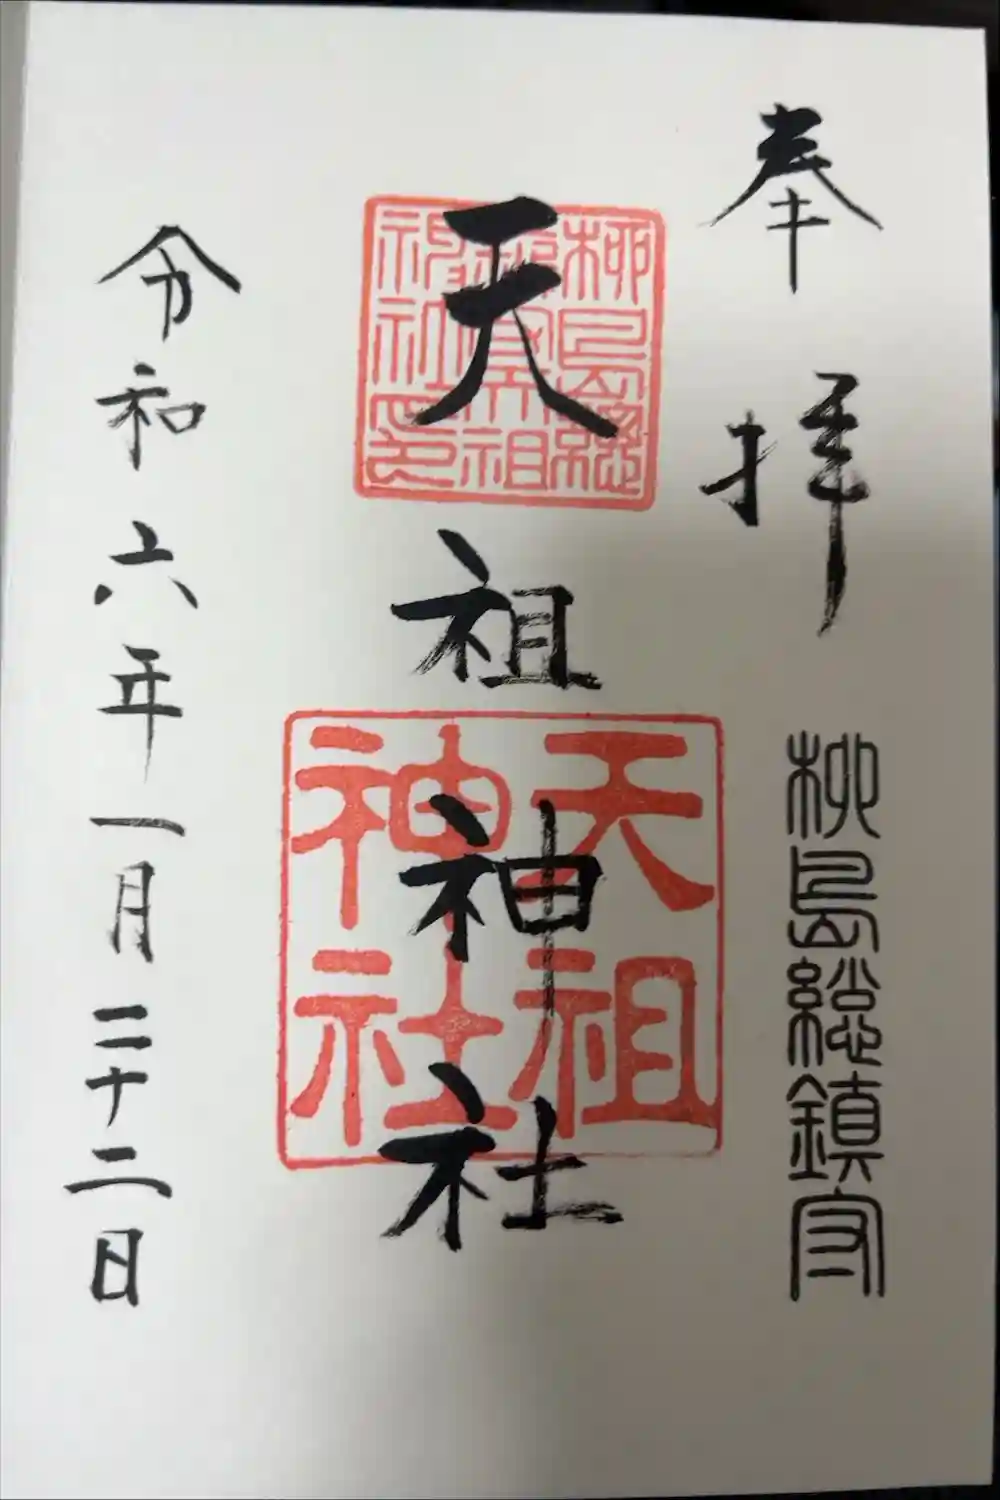 奉拝
柳島総鎮守
天祖神社
柳島總
鎮守天祖
神社之印
天祖
神社
令和六年一月二十二日